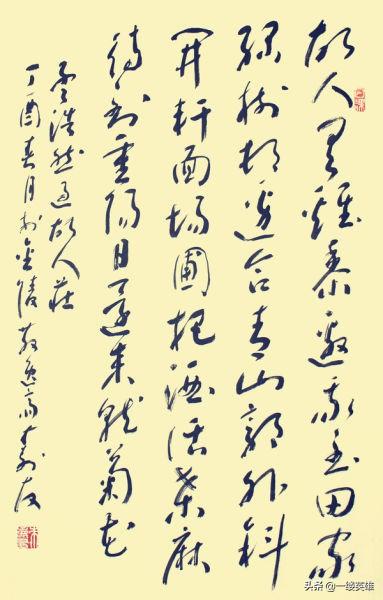 故人具雞黍邀我至田家
綠樹村邊合青山郭外斜
開軒面場圃把酒話桑麻
待到重陽日還來就菊花
孟浩然過故人莊
丁酉春月於金陵散逸齋
头条 @一绫英雄